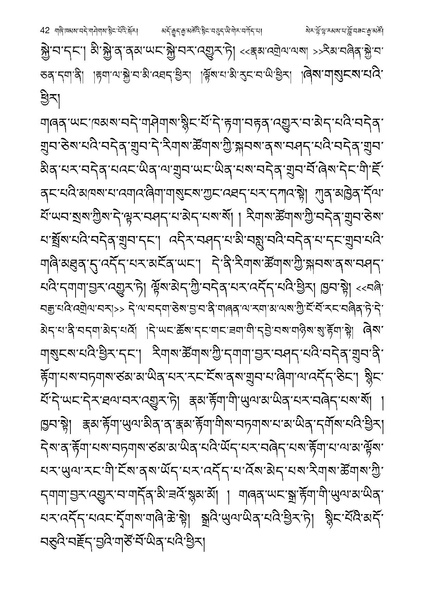 42 གཞི་ཁམས་བདེ་གཤེགས་སྙིང་པོའི་སྐོར། མདོ་རྒྱུད་རྒྱ་མཚོའི་སྙིང་བཅུད་ཡི་གེར་བཀོད་པ། སེར་
སྐྱེ་བ་དང་། མི་སྐྱེ་ན་ནམ་ཡང་སྐྱེ་བར་འགྱུར་ཏེ། <<རྣམ་འགྲེལ་ལས། >>རིམ་བཞིན་སྐྱེ་བ་
ཅན་དག་ནི། །རྟག་ལ་སྐྱེ་བ་མི་འཐད་ཕྱིར། །ལྟོས་པ་མི་རུང་བ་ཡི་ཕྱིར། །ཞེས་གསུངས་པའི་
ཕྱིར།
གཞན་ཡང་ཁམས་བདེ་གཤེགས་སྙིང་པོ་དེ་རྟག་བརྟན་འགྱུར་བ་མེད་པའི་བདེན་
གྲུབ་ཅེས་པའི་བདེན་གྲུབ་དེ་རིགས་ཚོགས་ཀྱི་སྐབས་ནས་བཤད་པའི་བདེན་གྲུབ་
མིན་པར་བདེན་པའང་ཡིན་ལ་གྲུབ་ཡང་ཡིན་པས་བདེན་གྲུབ་བོ་ཞེས་དེང་གི་ཇོ་
ནང་པའི་མཁས་པ་འགའ་ཞིག་གསུངས་ཀྱང་འཐད་པར་དཀའ་སྟེ། ཀུན་མཁྱེན་དོལ་
པོ་ཡབ་སྲས་ཀྱིས་དེ་ལྟར་བཤད་པ་མེད་པས་སོ། །རིགས་ཚོགས་ཀྱི་བདེན་གྲུབ་ཅེས་
པ་སྤྲོས་པའི་བདེན་གྲུབ་དང་། འདིར་བཤད་པ་མི་བསླུ་བའི་བདེན་པ་དང་གྲུབ་པའི་
གཞི་མཐུན་དུ་འདོད་པར་མངོན་ཡང་། དེ་ནི་རིགས་ཚོགས་ཀྱི་སྐབས་ནས་བཤད་
པའི་དགག་བྱར་འགྱུར་ཏེ། ལྟོས་མེད་ཀྱི་བདེན་པར་འདོད་པའི་ཕྱིར། ཁྱབ་སྟེ། <<བཞི་
བརྒྱ་པའི་འགྲེལ་བར།>> དེ་ལ་བདག་ཅེས་བྱ་བ་ནི་གཞན་ལ་རག་མ་ལས་ཀྱི་ངོ་བོ་རང་བཞིན་ཏེ་དེ་
མེད་པ་ནི་བདག་མེད་པའོ། །དེ་ཡང་ཆོས་དང་གང་ཟག་གི་དབྱེ་བས་གཉིས་སུ་རྟོག་སྟེ། ཞེས་
གསུངས་པའི་ཕྱིར་དང་། རིགས་ཚོགས་ཀྱི་དགག་བྱར་བཤད་པའི་བདེན་གྲུབ་ནི་
རྟོག་པས་བཏགས་ཙམ་མ་ཡིན་པར་རང་ངོས་ནས་གྲུབ་པ་ཞིག་ལ་འདོད་ཅིང་། སྙིང་
པོ་དེ་ཡང་དེར་ཐལ་བར་འགྱུར་ཏེ། རྣམ་རྟོག་གི་ཡུལ་མ་ཡིན་པར་བཞེད་པས་སོ། །
ཁྱབ་སྟེ། རྣམ་རྟོག་ཡུལ་མིན་ན་རྣམ་རྟོག་གིས་བཏགས་པ་མ་ཡིན་དགོས་པའི་ཕྱིར།
དེས་ན་རྟོག་པས་བཏགས་ཙམ་མ་ཡིན་པའི་ཡོད་པར་བཞེད་པས་རྟོག་པ་ལ་མ་ལྟོས་
པར་ཡུལ་རང་གི་ངོས་ནས་ཡོད་པར་འདོད་པ་ལ་འོས་མེད་པས་རིགས་ཚོགས་ཀྱི་
དགག་བྱར་འགྱུར་བ་གདོན་མི་ཟའོ་སྙམ་མོ། །གཞན་ཡང་སྒྲ་རྟོག་གི་ཡུལ་མ་ཡིན་
པར་འདོད་པའང་དྭོགས་གཞི་ཆེ་སྟེ། སྒྲའི་ཡུལ་ཡིན་པའི་ཕྱིར་ཏེ། སྙིང་པོའི་མདོ་
བཅུའི་བརྗོད་བྱའི་གཙོ་བོ་ཡིན་པའི་ཕྱིར།